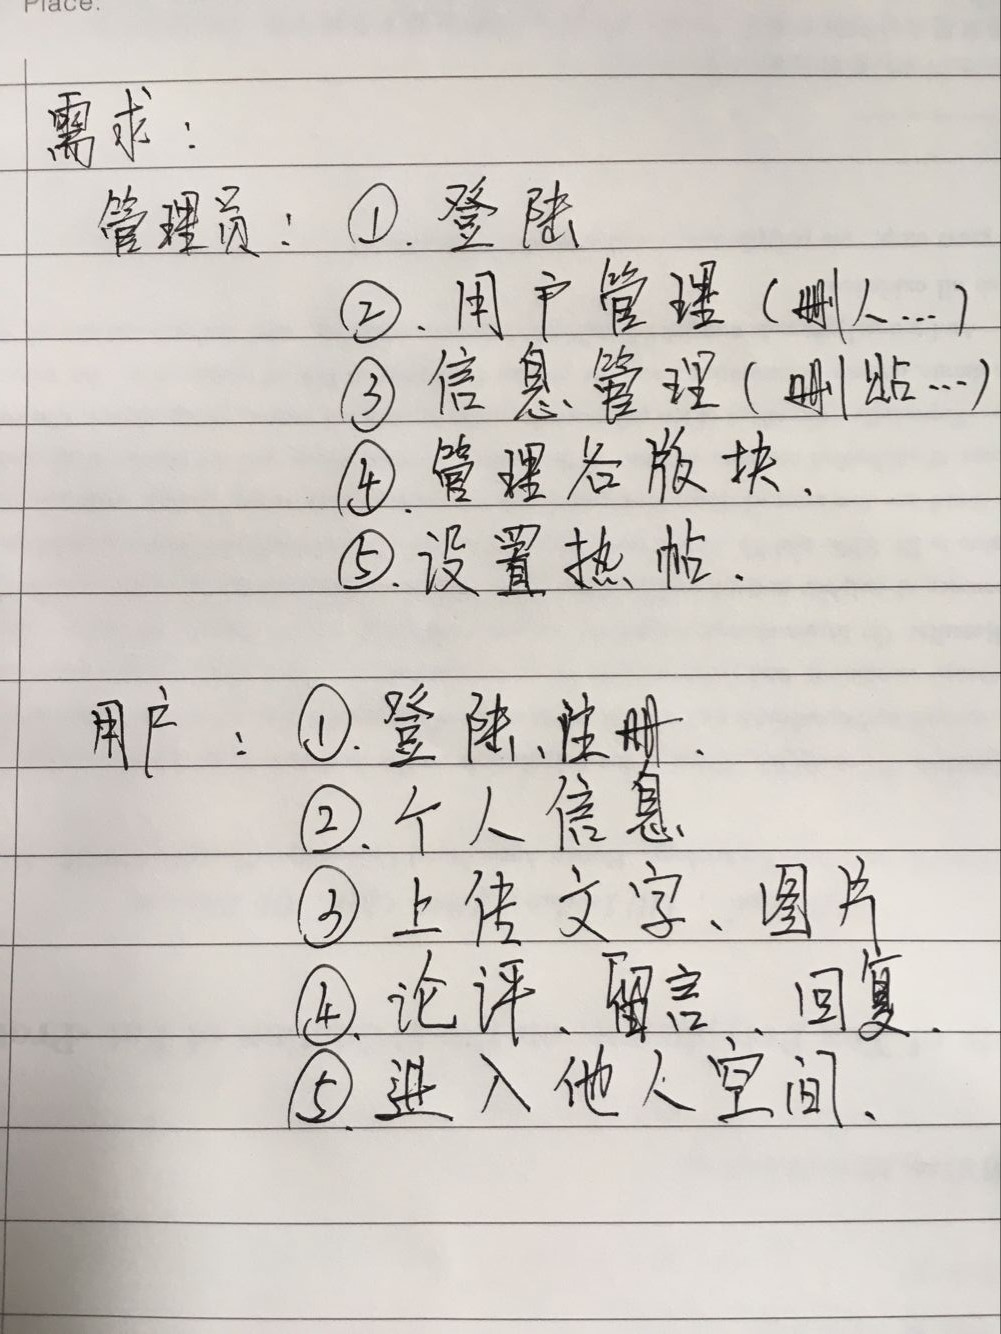 Place:
需求：
管理员：①.登陆
②、用户管理（删人…）
③信息管理（删贴…）
④.管理各版块.
⑤.设置热帖.
用户：①.登陆、注册.
②.个人信息
③上传文字、图片
④.论评、留言、回复.
⑤.进入他人空间.